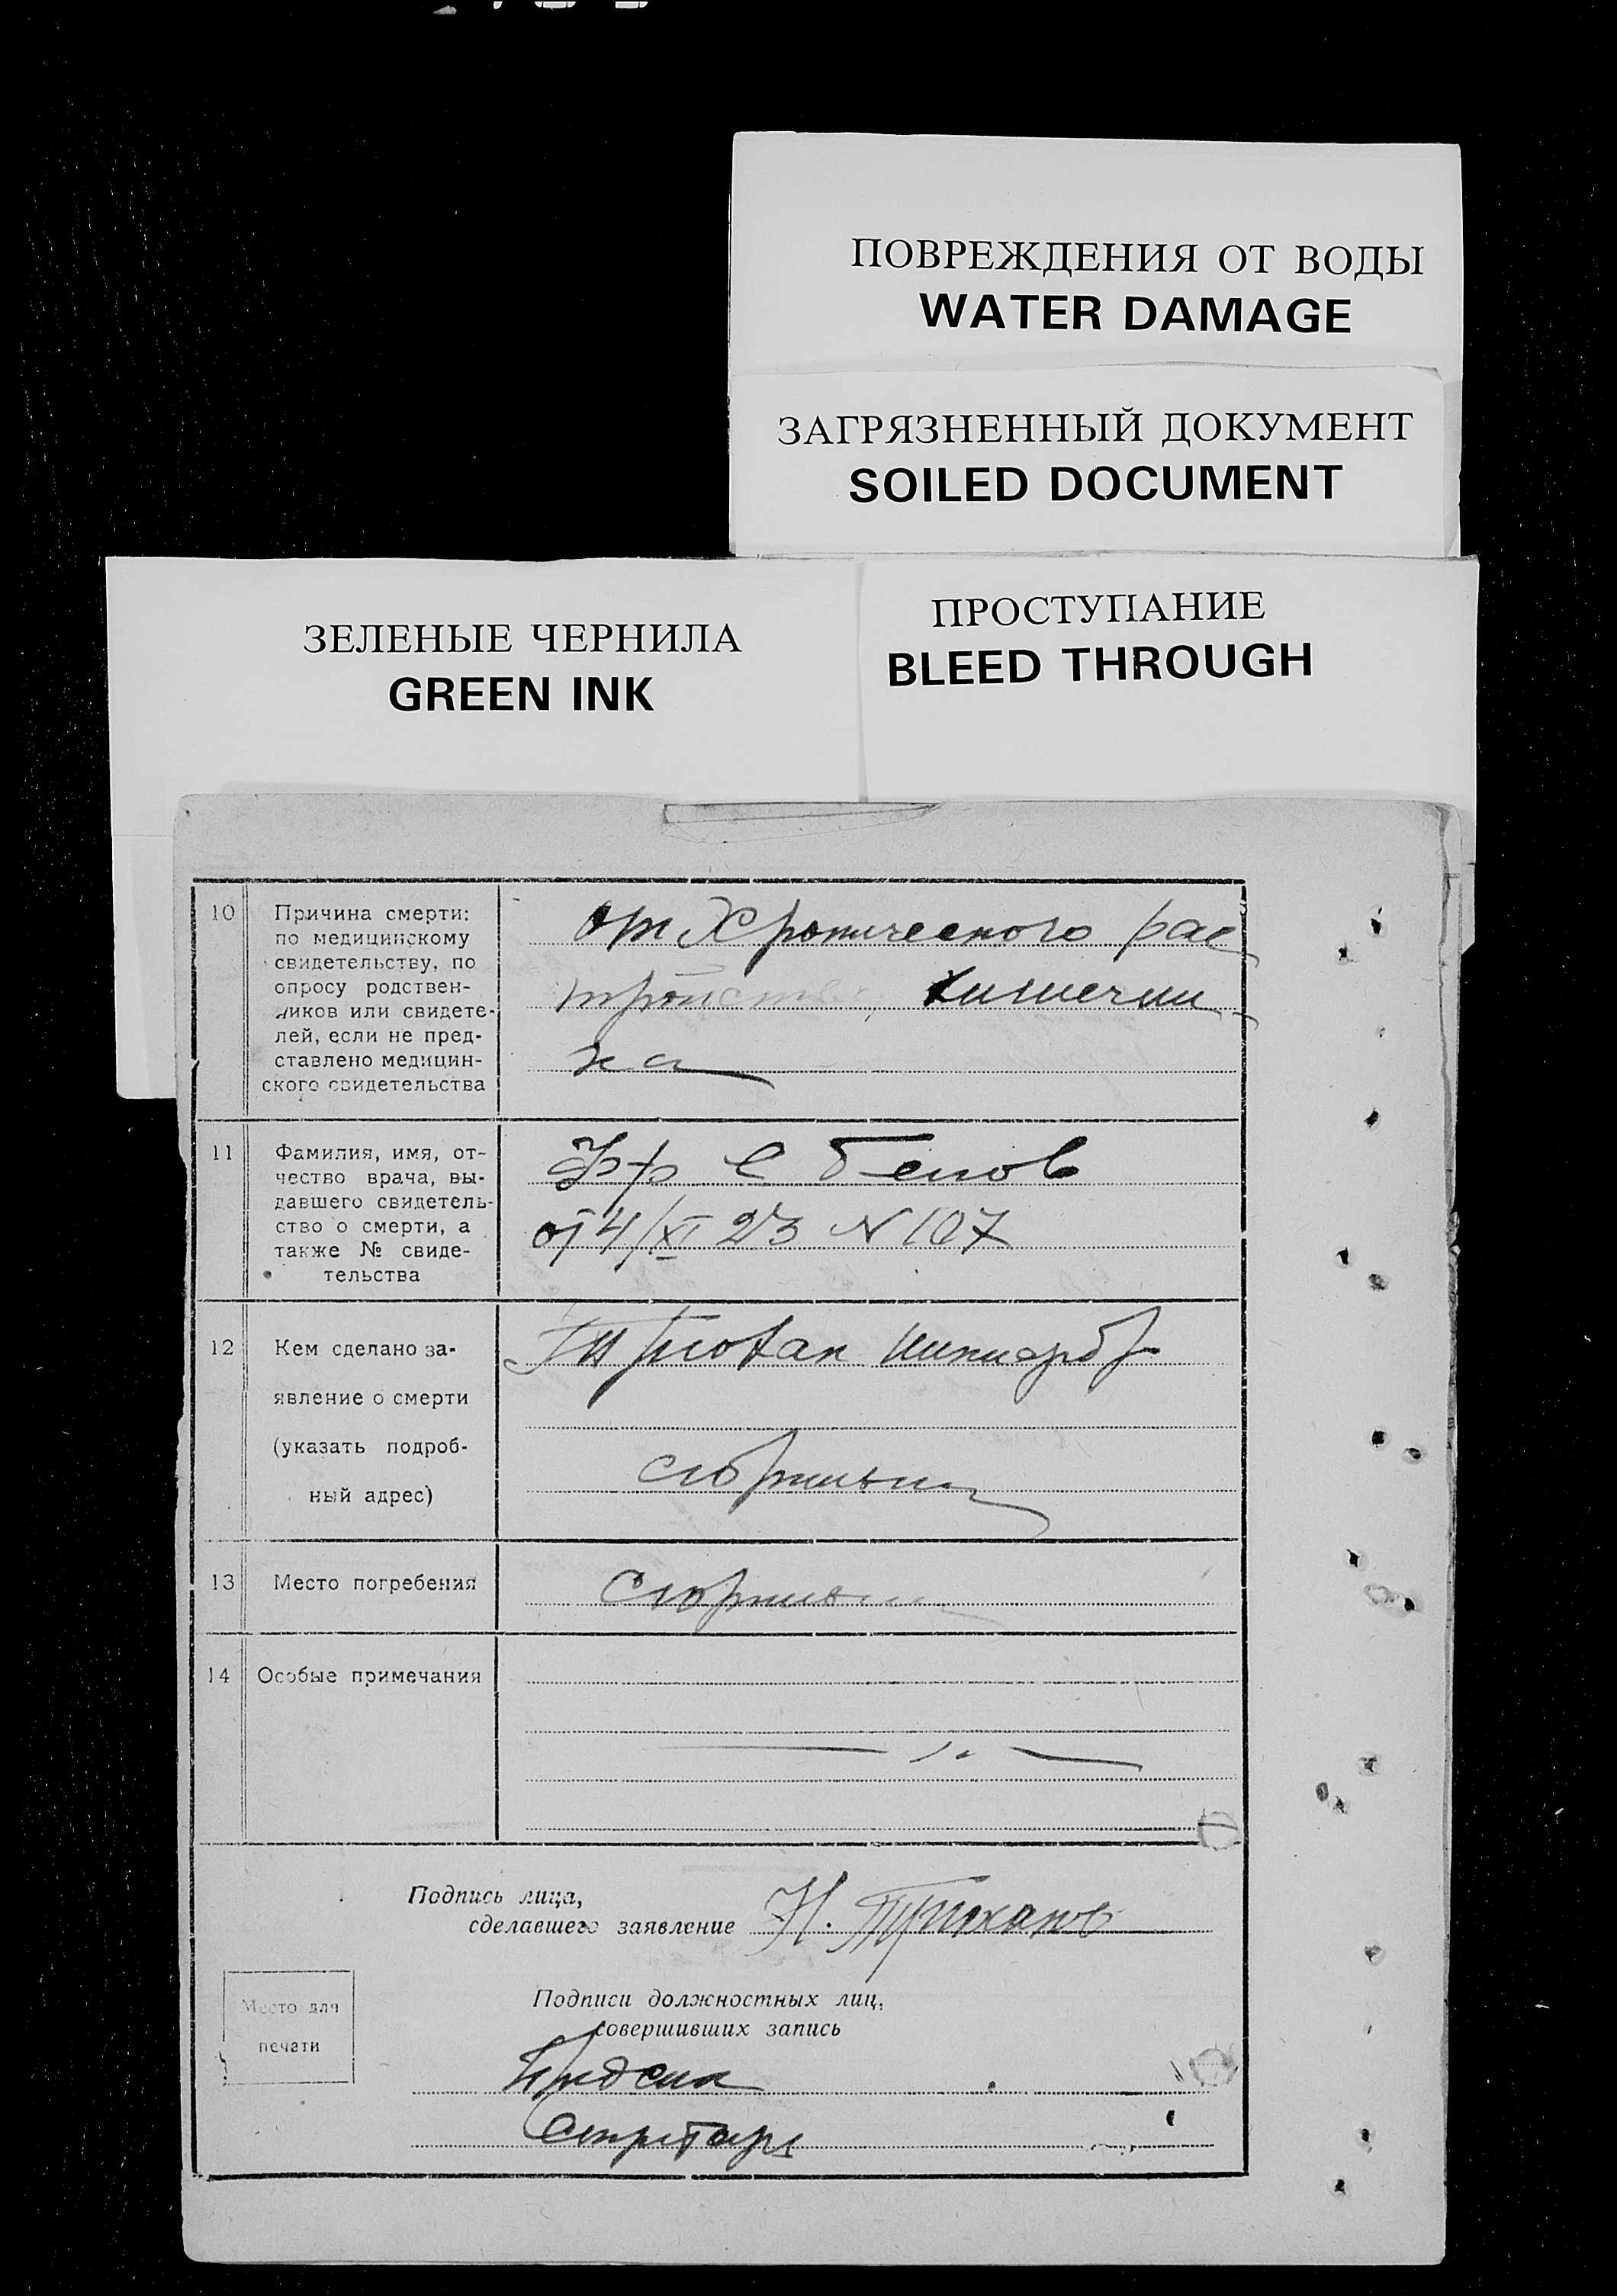 ПОВРЕЖДЕНИЯ ОТ ВОДЫ
WATER DAMAGE
ЗАГРЯЗНЕННЫЙ ДОКУМЕНТ
SOILED DOCUMENT
ЗЕЛЕНЫЕ ЧЕРНИЛА
GREEN INK
ПРОСТУПАНИЕ
BLEED THROUGH
10
Причина смерти:
по медицинскому
свидетельству, по
опросу родствен-
ников или свидете-
лей, если не пред-
ставлено медицин-
ского свидетельства
от Хронического рас
тройства Кишечни
ка
11
Фамилия, имя, от-
чество врача, вы-
давшего свидетель-
ство о смерти, а
также № свиде-
тельства
С Белов
от 4/XI 23 N 107
12
Кем сделано за-
явление о смерти
(указать подроб-
ный адрес)
13
Место погребения
14
Особые примечания
Подпись лица,
сделавшего заявление
Н.
Место для
печати
Подписи должностных лиц,
совершивших запись
Секретарь